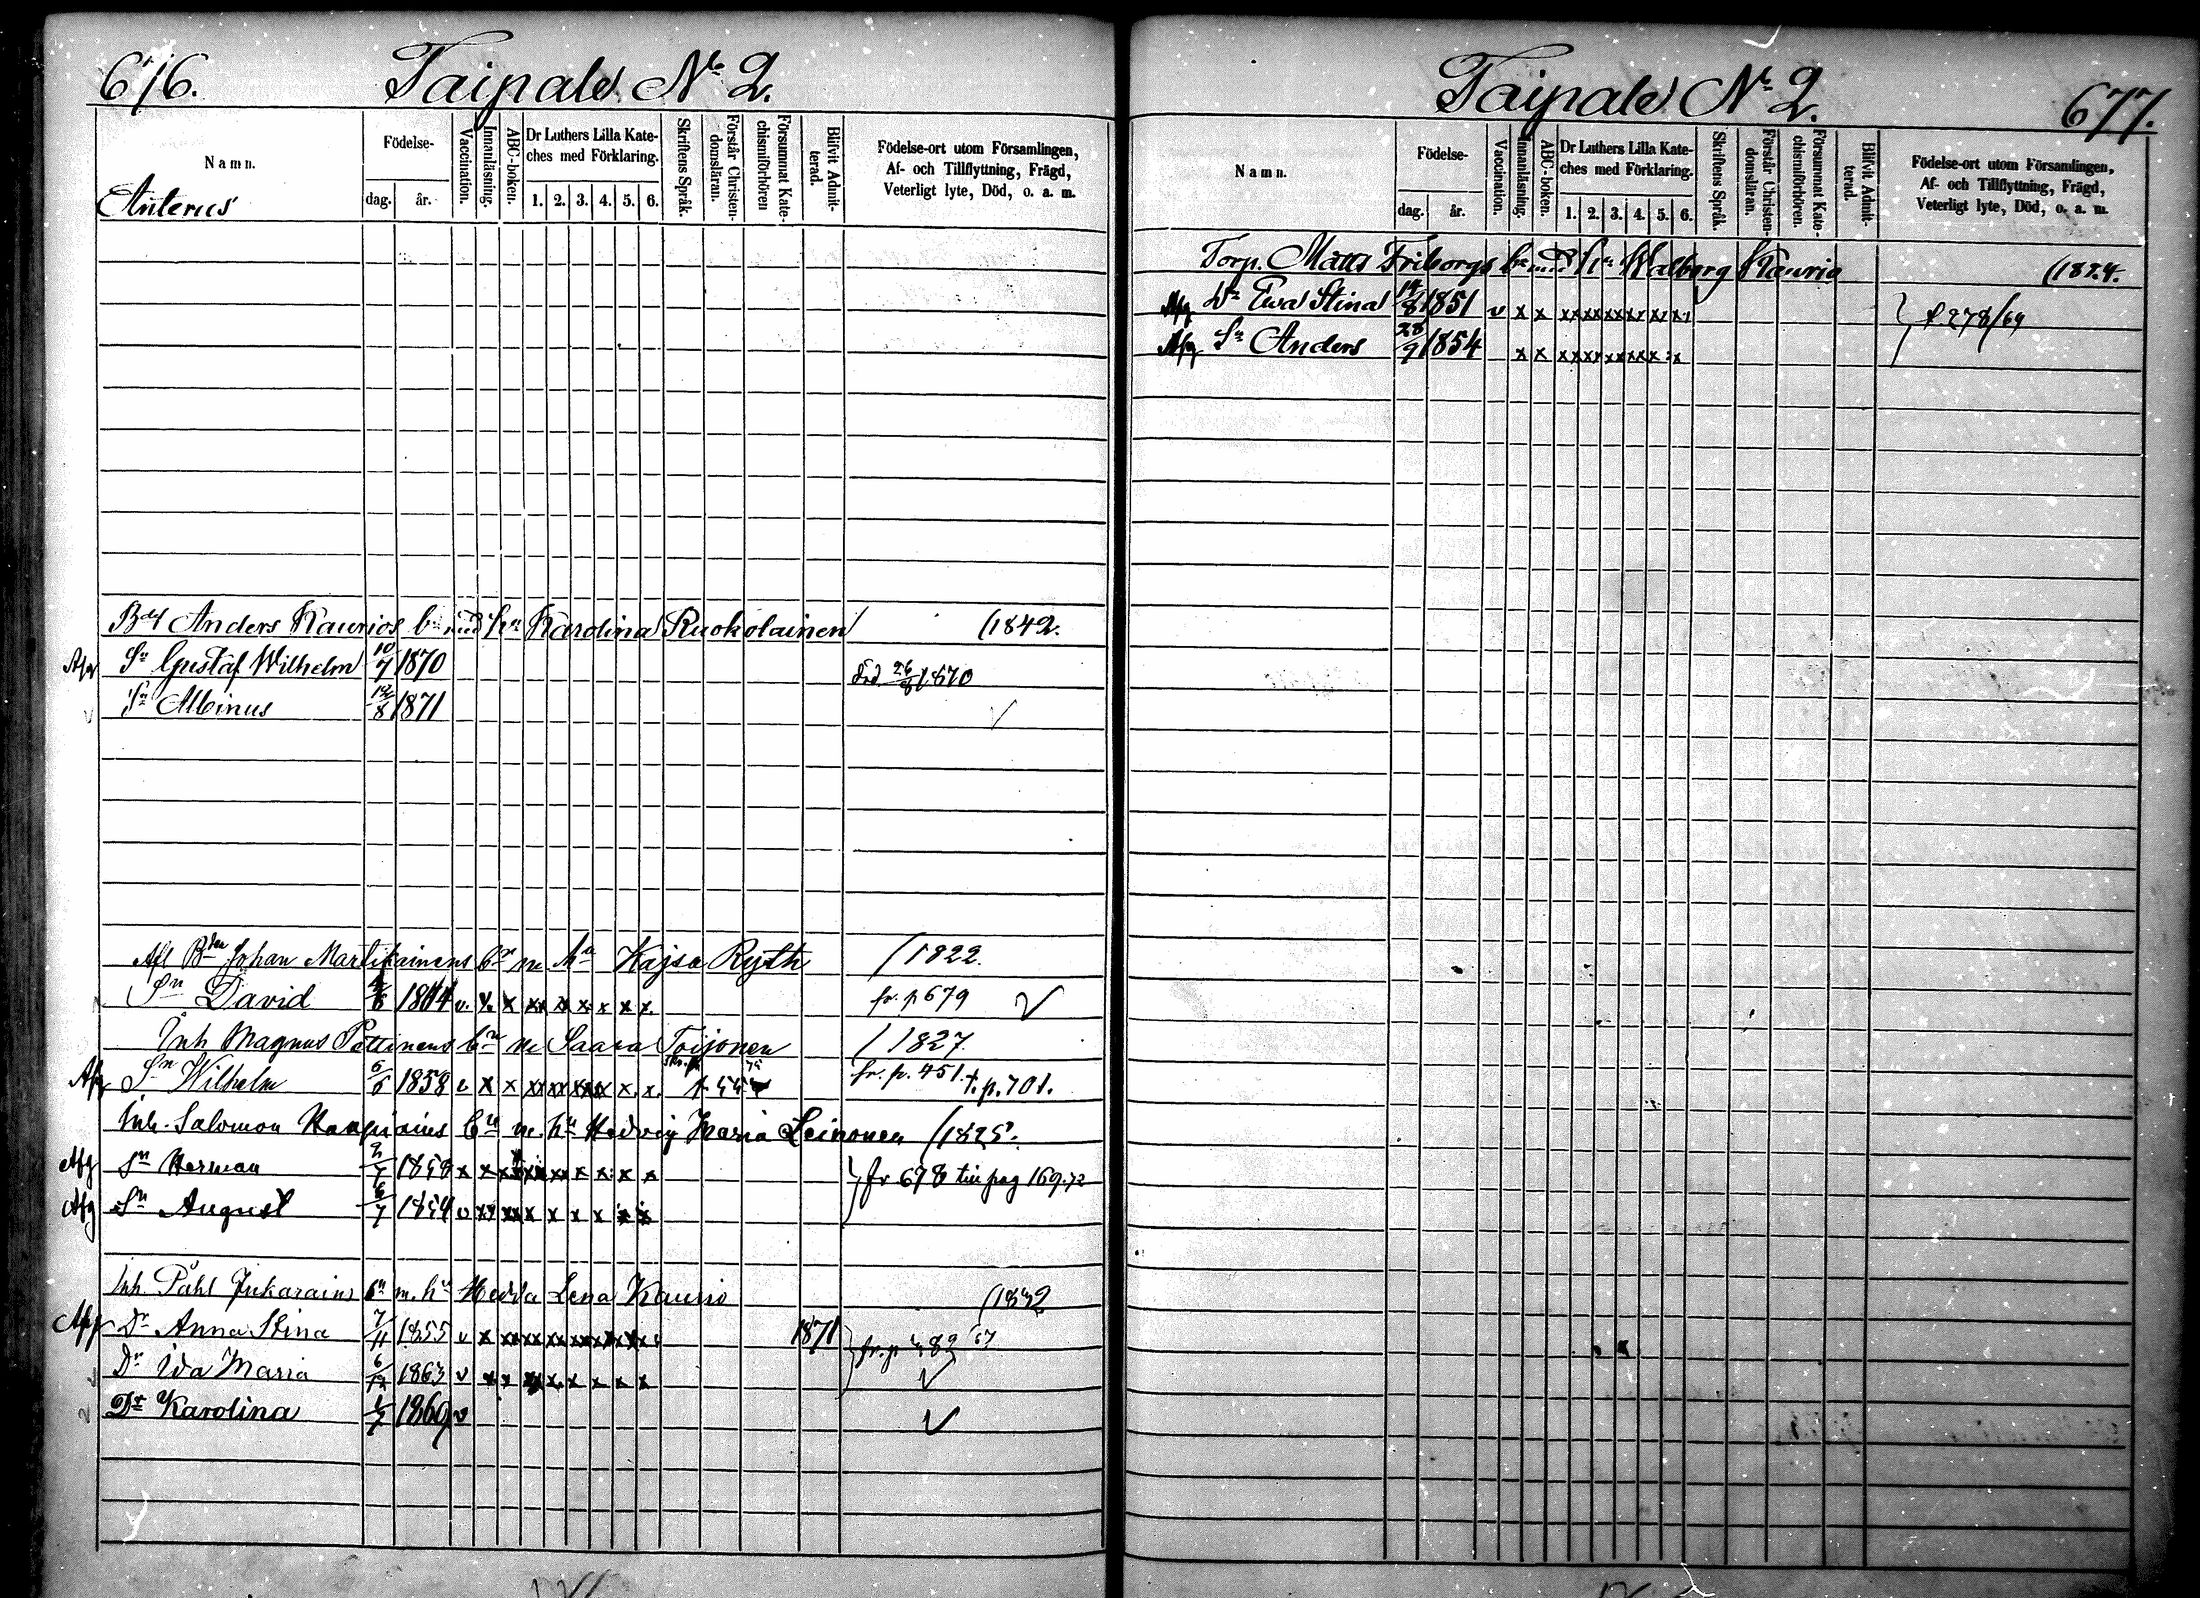 676. Taipale No 2.
Namn.
Födelse-
dag. år.
Vaccination.
Innanläsning.
ABC-boken.
Dr Luthers Lilla Kate-
ches med Förklaring.
1. 2. 3. 4. 5. 6.
Skriftens Språk.
Förstår Christen-
domsläran.
Försummat Kate-
chismiförhören
Blifvit Admit-
terad.
Födelse-ort utom Församlingen,
Af- och Tillflyttning, Frägd,
Veterligt lyte, Död, o. a. m.
Anterus
Anders Kaurios bn med hu Karolina Ruokolainen (1842.
Afg Sn Gustaf Wilhelm 10/7 1870 död 26/8 1870
Sn Albinus 12/8 1871 v
Afl Johan Martikainens bn m hu Kajsa Ryth (1822.
Sn David 1864 v. x x xx x x x x x. fr. p 679 v
Inh Magnus Pettinens bn m Saara Toijonen (1827.
Afg Sn Wilhelm 6/6 1858 fr. p. 451. t. p. 701.
Inh. Salomon bn m. hu Hedvig Maria Leinonen (1825.
Afg Sn Herman 2/7 1858 fr 678 till pag 169.72
Afg Sn August
Inh. Påhl Jukarains bn m. hu Hedda Lena Kaurio (1832
Afg Dr Anna Stina 7/11 1855 1871 fr. p
Dr Ida Maria 1863 v
Dr Karolina 1869 v v
Taipale No 2. 677.
Namn.
Födelse-
dag. år.
Vaccination.
Innanläsning.
ABC-boken.
Dr Luthers Lilla Kate-
ches med Förklaring.
1. 2. 3. 4. 5. 6.
Skriftens Språk.
Förstår Christen-
domsläran.
Försummat Kate-
chismiförhören.
Blifvit Admit-
terad.
Födelse-ort utom Församlingen,
Af- och Tillflyttning, Frägd,
Veterligt lyte, Död, o. a. m.
Torp. Matts Friborgs bn med hu Walborg Kaurio (1824.
Afg Dr Ewa Stina 14/8 1851 v x x t. 278/69
Afg Sn Anders 28/9 1854 x x